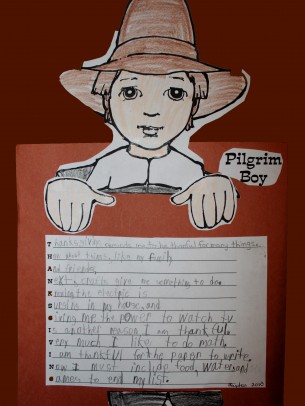 Pilgrim
Boy
Thanksgiving reminds me to be thankful for many things.
How about things like my family
And friends,
Next, chores give me something to do.
Knowing the electric is
staying in my house, and
Giving me the power to watch tv
Is another reason I am thankful.
Very much I like to do math.
I am thankful for the paper to write.
Now I must include food, water, and
Games to end my list.